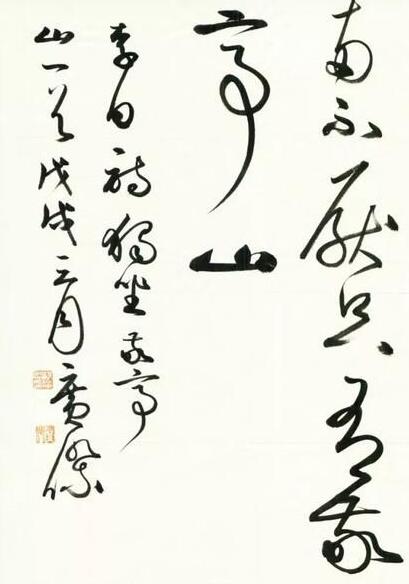 兩不厭只有敬
亭山
李白詩獨坐敬亭
山一首戊戌三月